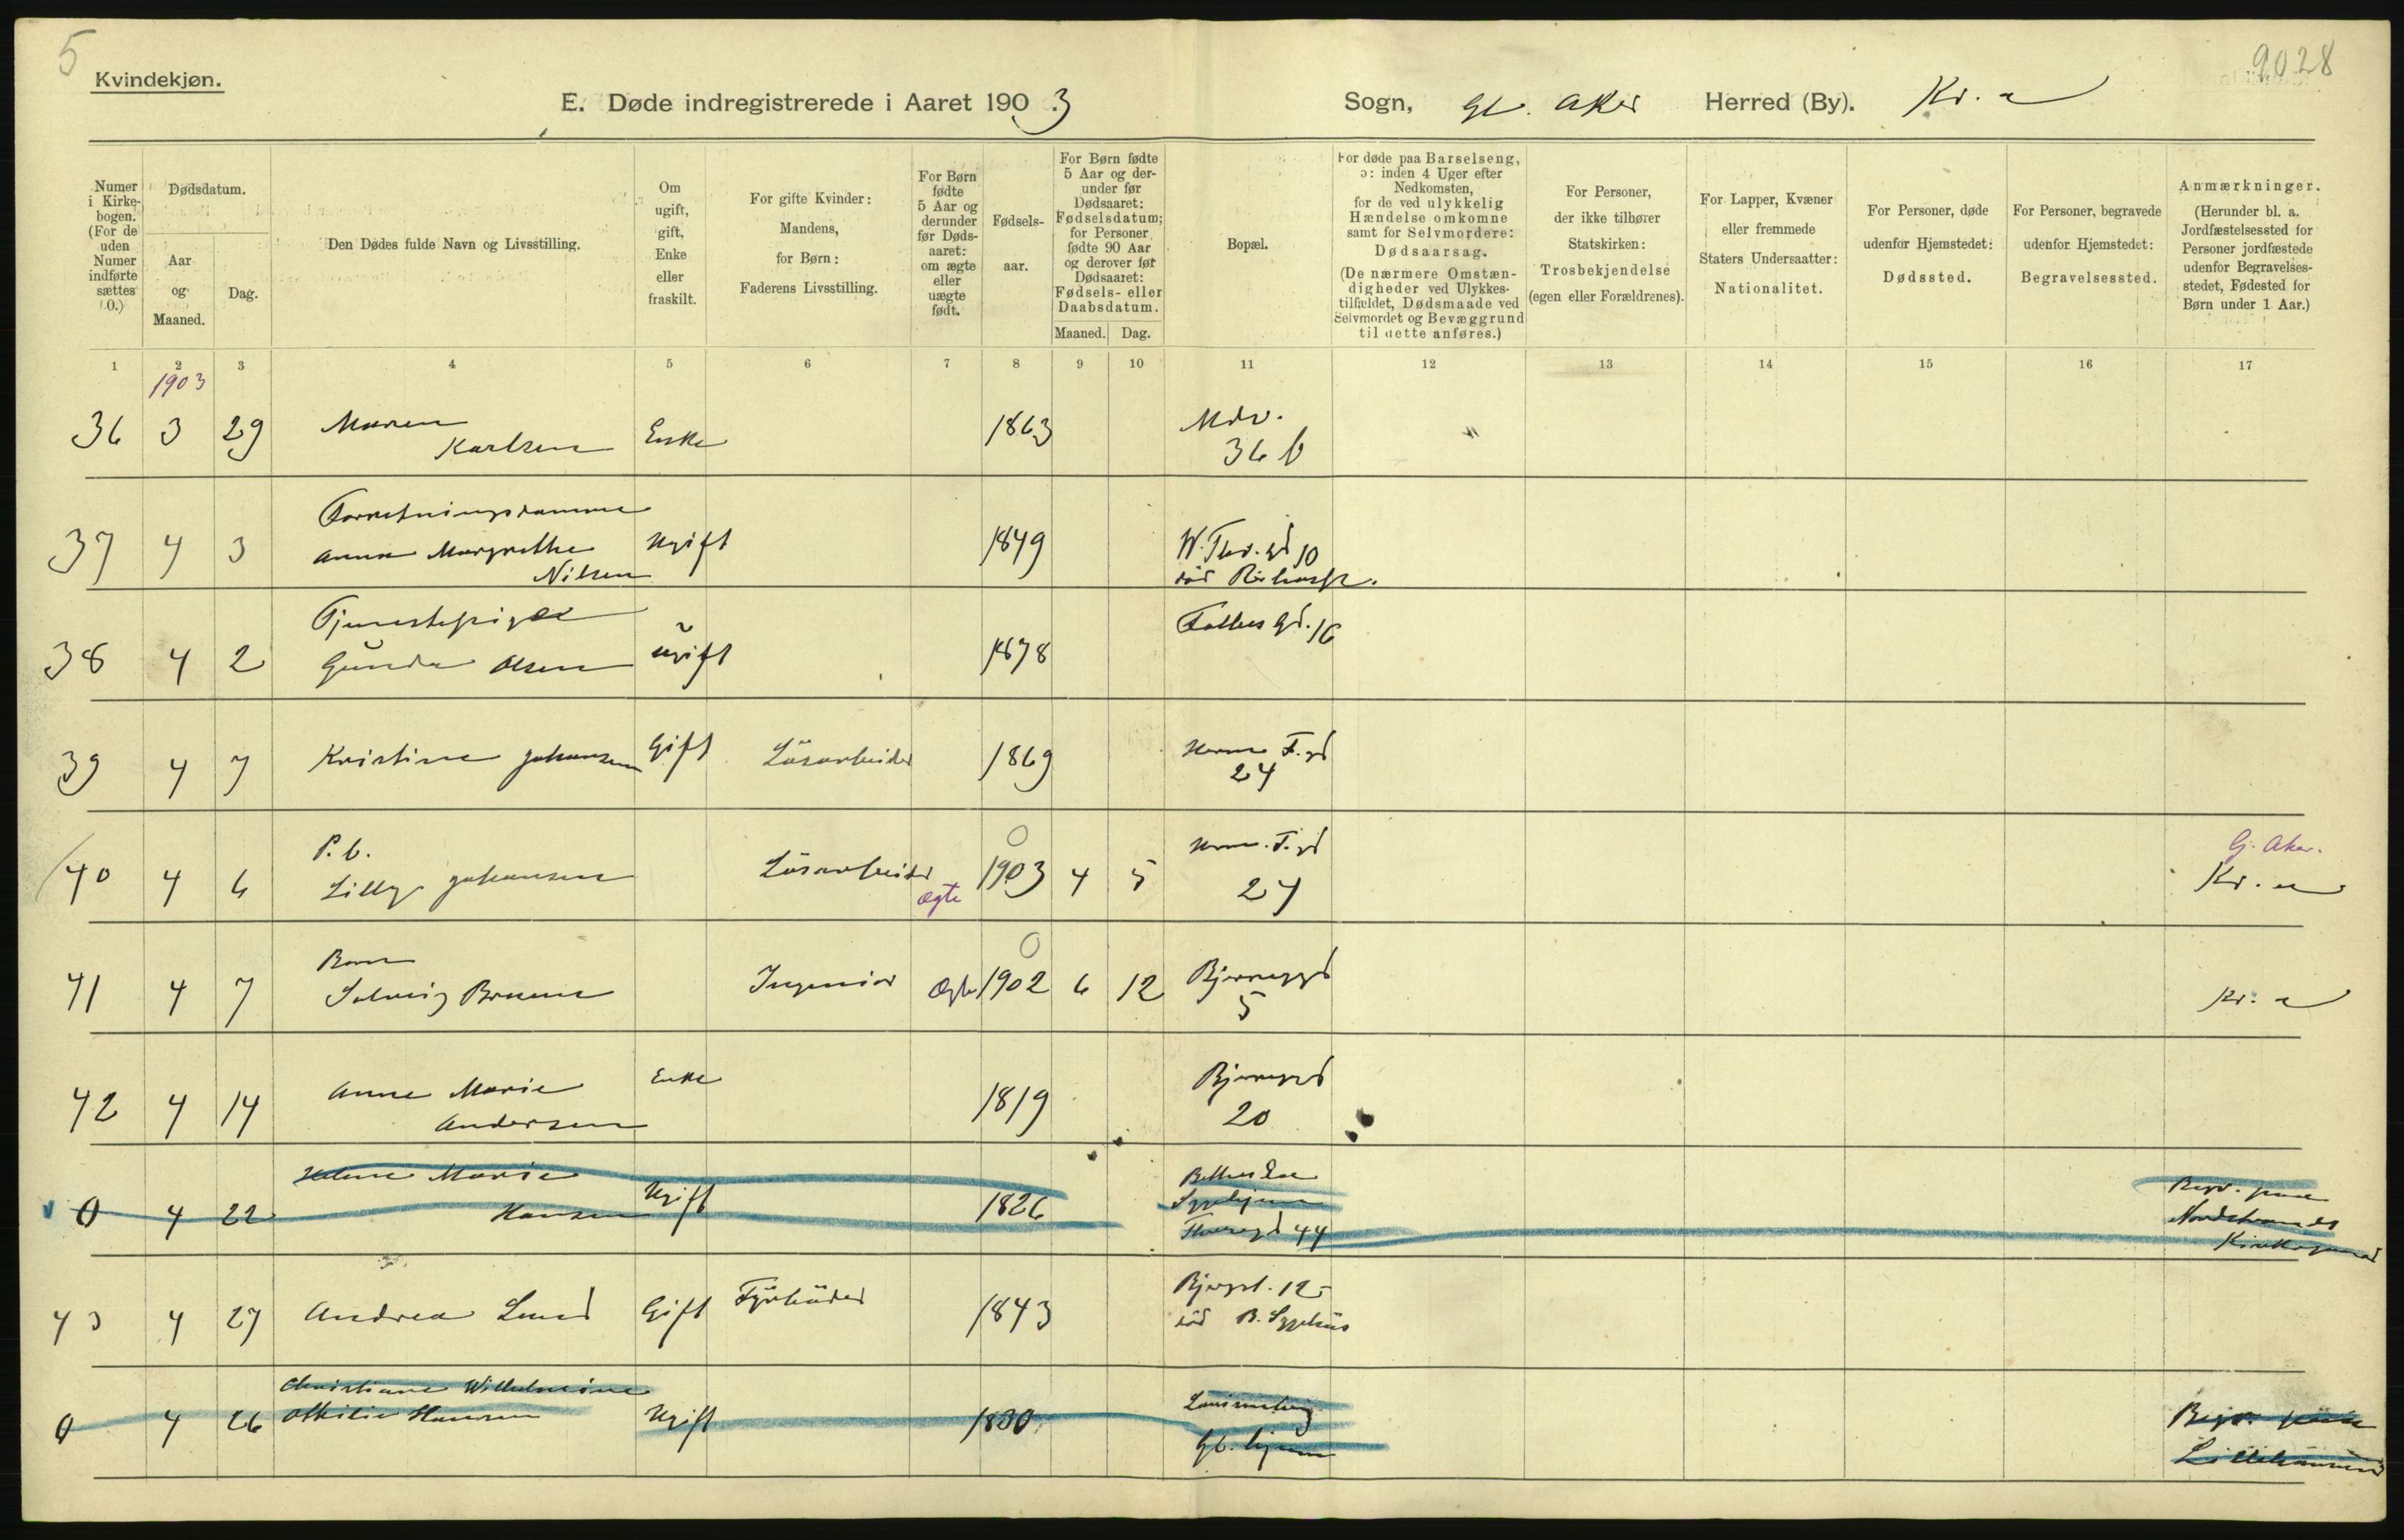 5
9028
Kvindekjøn.
E. Døde indregistrerede i Aaret 1903 Sogn, Gl. Aker Herred (By). Kr.a
Numer i Kirkebogen. (For de uden Numer indførte sættes 0.)
Dødsdatum.
Aar og Maaned.
Dag.
Den Dødes fulde Navn og Livsstilling.
Om ugift, gift, Enke eller fraskilt.
For gifte Kvinder: Mandens, for Børn: Faderens Livsstilling.
For Børn fødte 5 Aar og derunder før Dødsaaret: om ægte eller uægte født.
Fødselsaar.
For Børn fødte 5 Aar og derunder før Dødsaaret: Fødselsdatum; for Personer fødte 90 Aar og derover før Dødsaaret: Fødsels- eller Daabsdatum.
Maaned. Dag.
Bopæl.
For døde paa Barselseng, ɔ: inden 4 Uger efter Nedkomsten, for de ved ulykkelig Hændelse omkomne samt for Selvmordere: Dødsaarsag. (De nærmere Omstændigheder ved Ulykkestilfældet, Dødsmaade ved Selvmordet og Bevæggrund til dette anføres.)
For Personer, der ikke tilhører Statskirken: Trosbekjendelse (egen eller Forældrenes).
For Lapper, Kvæner eller fremmede Staters Undersaatter: Nationalitet.
For Personer, døde udenfor Hjemstedet: Dødssted.
For Personer, begravede udenfor Hjemstedet: Begravelsessted.
Anmærkninger. (Herunder bl. a. Jordfæstelsessted for Personer jordfæstede udenfor Begravelsesstedet, Fødested for Børn under 1 Aar.)
1 2 3 4 5 6 7 8 9 10 11 12 13 14 15 16 17
1903
36 3 29 Maren Karlsen Enke 1863 Mdv. 36 b
37 4 3 Forretningsdamme Anna Margrethe Nilsen Ugift 1849 W. Thr. gd 10 död Rikshosp.
38 4 2 Tjenestepige Gunda Olsen ugift 1878 Falbes Gd. 16
39 4 7 Kristine Johansen Gift Lösarbeider 1869 F. gd 24
40 4 6 P. b. Lilly Johansen Lösarbeider Ægte 0 1903 4 5 F. gd 24 G. Aker. Kr.a
41 4 7 Barn Solveig Ingeniör Ægte 0 1902 6 12 Bjerregd 5 Kr.a
42 4 14 Anne Marie Andersen Enke 1819 Bjerregd 20
0 4 22 Marie Hansen Ugift 1826 Sygehjem 44 Begr. paa Nordstrands Kirkegaard
43 4 27 Andrea Lund Gift Fyrböder 1843 12 död B. Sygehus
0 4 26 Christiane Wilhelmine Othilie Hansen Ugift 1830 Gl. hjem Begr. paa Lillehammer